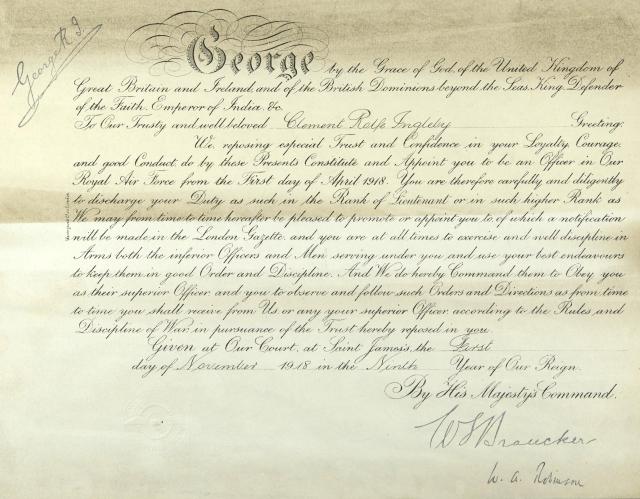 George R. I.
George by the Grace of God, of the United Kingdom of
Great Britain and Ireland, and of the British Dominions beyond the Seas, King, Defender
of the Faith, Emperor of India, &c.
To Our Trusty and well beloved Clement Rolfe Ingleby Greeting:
We, reposing especial Trust and Confidence in your Loyalty, Courage,
and good Conduct, do by these Presents Constitute and Appoint you to be an Officer in Our
Royal Air Force from the First day of April 1918. You are therefore carefully and diligently
to discharge your Duty as such in the Rank of Lieutenant or in such higher Rank as
We may from time to time hereafter be pleased to promote or appoint you to, of which a notification
will be made in the London Gazette, and you are at all times to exercise and well discipline in
Arms both the inferior Officers and Men serving under you and use your best endeavours
to keep them in good Order and Discipline. And We do hereby Command them to Obey you
as their superior Officer and you to observe and follow such Orders and Directions as from time
to time you shall receive from Us, or any your superior Officer according to the Rules and
Discipline of War, in pursuance of the Trust hereby reposed in you.
Given at Our Court, at Saint James's, the First
day of November 1918 in the Ninth Year of Our Reign.
By His Majesty's Command.
W. A. Robinson